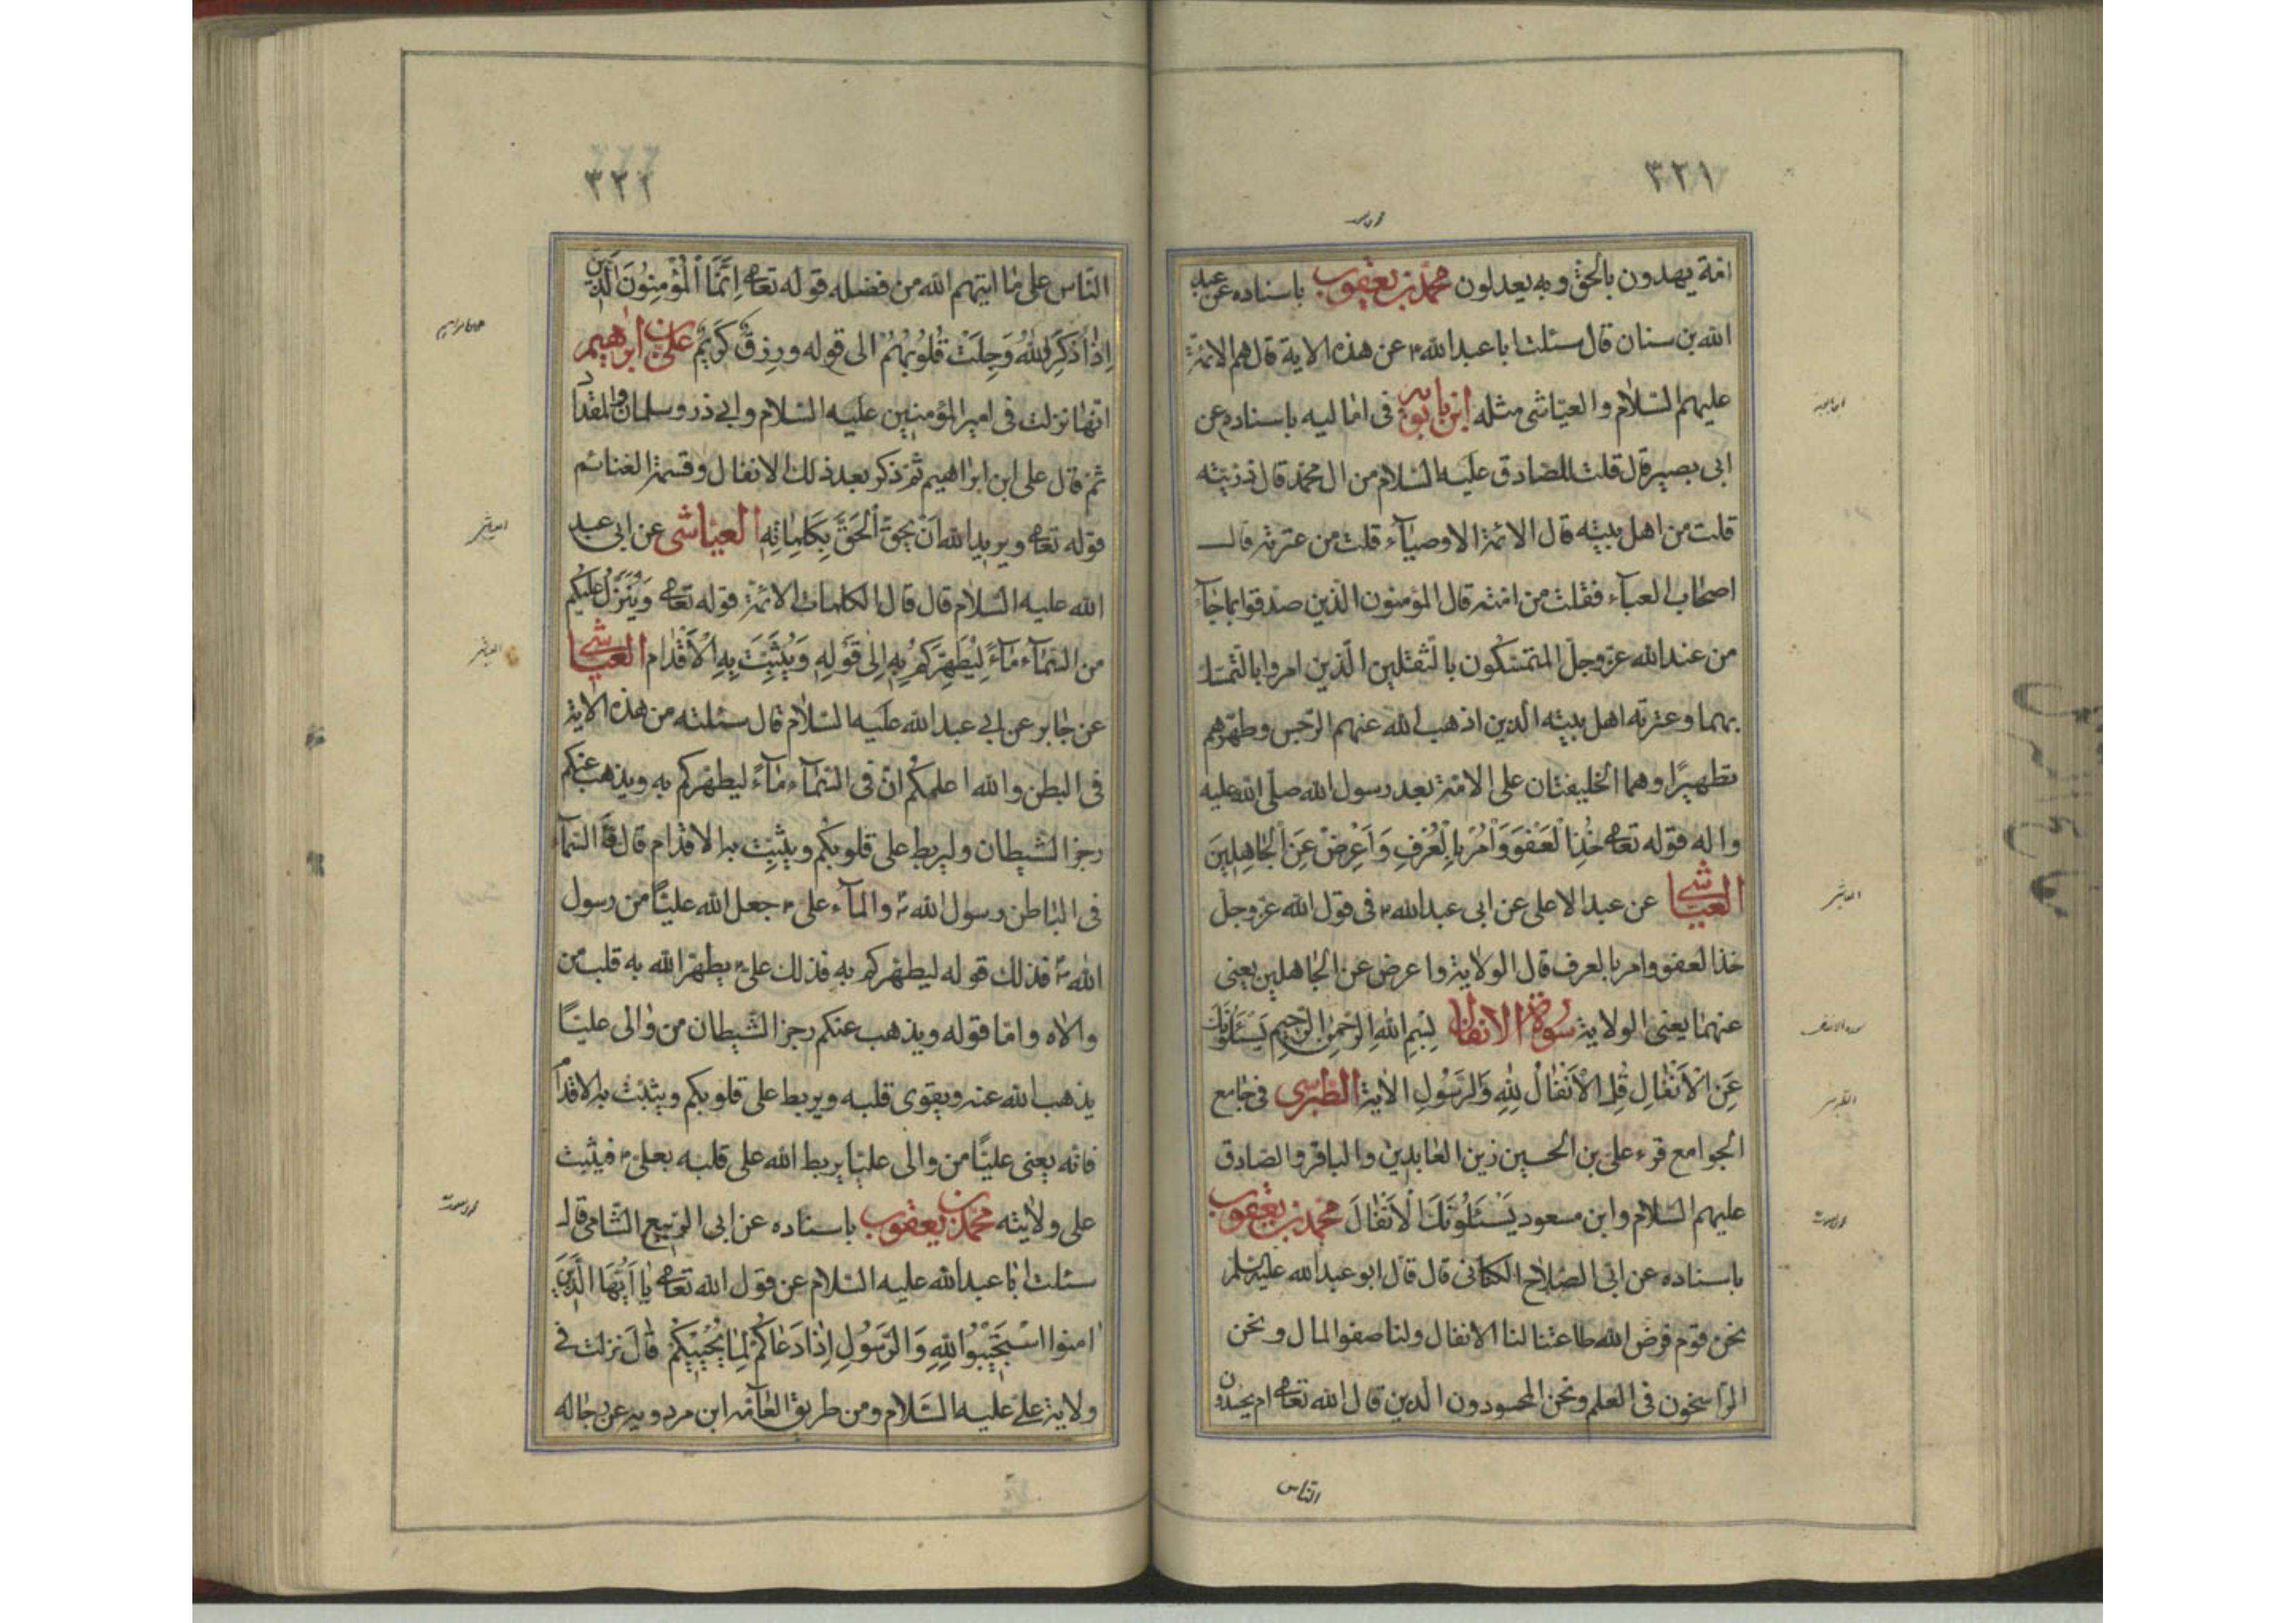 ٣٢١
امة يهدون بالحق وبه يعدلون محمد بن يعقوب باسناده عن عبد
الله بن سنان قال سئلت ابا عبد الله ع عن هذه الاية قال هم الائمة
عليهم السلام والعياشى مثله ابن بابويه فى اماليه باسناده عن
ابى بصير قال قلت للصادق عليه السلام من ال محمد قال ذريته
قلت من اهل بيته قال الائمة الاوصياء قلت من عترته قال
اصحاب العباء فقلت من امته قال المؤمنون الذين صدقوا بما جاء
من عند الله عز وجل المتمسكون بالثقلين الذين امروا بالتمسك
بهما وعترته اهل بيته الذين اذهب الله عنهم الرجس وطهرهم
تطهيرًا وهما الخليفتان على الامة بعد رسول الله صلى الله عليه
واله قوله تعالى خُذِ الْعَفْوَ وَأْمُرْ بِالْعُرْفِ وَاَعْرِضْ عَنِ الْجَاهِلِينَ
العياشى عن عبد الاعلى عن ابى عبد الله ع فى قول الله عز وجل
خذ العفو وامر بالعرف قال الولاية واعرض عن الجاهلين يعنى
عنهما يعنى الولاية سورة الانفال بِسْمِ اللهِ الرَّحْمٰنِ الرَّحِيمِ يَسْئَلُونَكَ
عَنِ الْاَنْفَالِ قُلِ الْاَنْفَالُ لِلّٰهِ وَالرَّسُولِ الاية الطبرسى فى جامع
الجوامع قرء على بن الحسين زين العابدين والباقر والصادق
عليهم السلام وابن مسعود يَسْئَلُونَكَ الْاَنْفَالَ محمد بن يعقوب
باسناده عن ابى الصلاح الكنانى قال قال ابو عبد الله عليه السلم
نحن قوم فرض الله طاعتنا لنا الانفال ولنا صفوا المال ونحن
الراسخون فى العلم ونحن المحسودون الذين قال الله تعالى ام يحسدون
الناس
٣٢٢
الناس على ما اتيهم الله من فضله قوله تعالى اِنَّمَا الْمُؤْمِنُونَ الَّذِينَ
اِذَا ذُكِرَ اللهُ وَجِلَتْ قُلُوبُهُمْ الى قوله ورِزْقٌ كَرِيمٌ على بن ابراهيم
انها نزلت فى امير المؤمنين عليه السلام وابى ذر وسلمان والمقداد
ثم قال على ابن ابراهيم ثم ذكر بعد ذلك الانفال وقسمة الغنائم
قوله تعالى ويريد الله اَنْ يُحِقَّ الْحَقَّ بِكَلِمَاتِهِ العياشى عن ابى عبد
الله عليه السلام قال قال الكلمات الائمة قوله تعالى وَيُنَزِّلُ عَلَيْكُمْ
من السماء مَاءً لِيُطَهِّرَكُمْ بِهِ اِلٰى قَوْلِهِ وَيُثَبِّتَ بِهِ الْاَقْدَام العياشى
عن جابر عن ابى عبد الله عليه السلام قال سئلته من هذه الاية
فى البطن والله اعلمكم ان فى السماء ماءً ليطهركم به ويذهب عنكم
رجز الشيطان وليربط على قلوبكم ويثبت به الاقدام قال فان السماء
فى الباطن رسول الله ص والماء على ع جعل الله عليًا من رسول
الله ص فذلك قوله ليطهركم به فذلك على ع يطهر الله به قلب من
والاه واما قوله ويذهب عنكم رجز الشيطان من والى عليًا
يذهب الله عنه ويقوى قلبه ويربط على قلوبكم ويثبت به الاقدام
فانه يعنى عليًا من والى عليًا يربط الله على قلبه بعلى ع فيثبت
على ولايته محمد بن يعقوب باسناده عن ابى الربيع الشامى قال
سئلت ابا عبد الله عليه السلام عن قول الله تعالى يا اَيُّهَا الَّذِينَ
امنوا اسْتَجِيبُوا لِلّٰهِ وَالرَّسُولِ اِذَا دَعَاكُمْ لِمَا يُحْيِيكُمْ قال نزلت فى
ولاية على عليه السلام ومن طريق العامة ابن مردويه عن رجاله